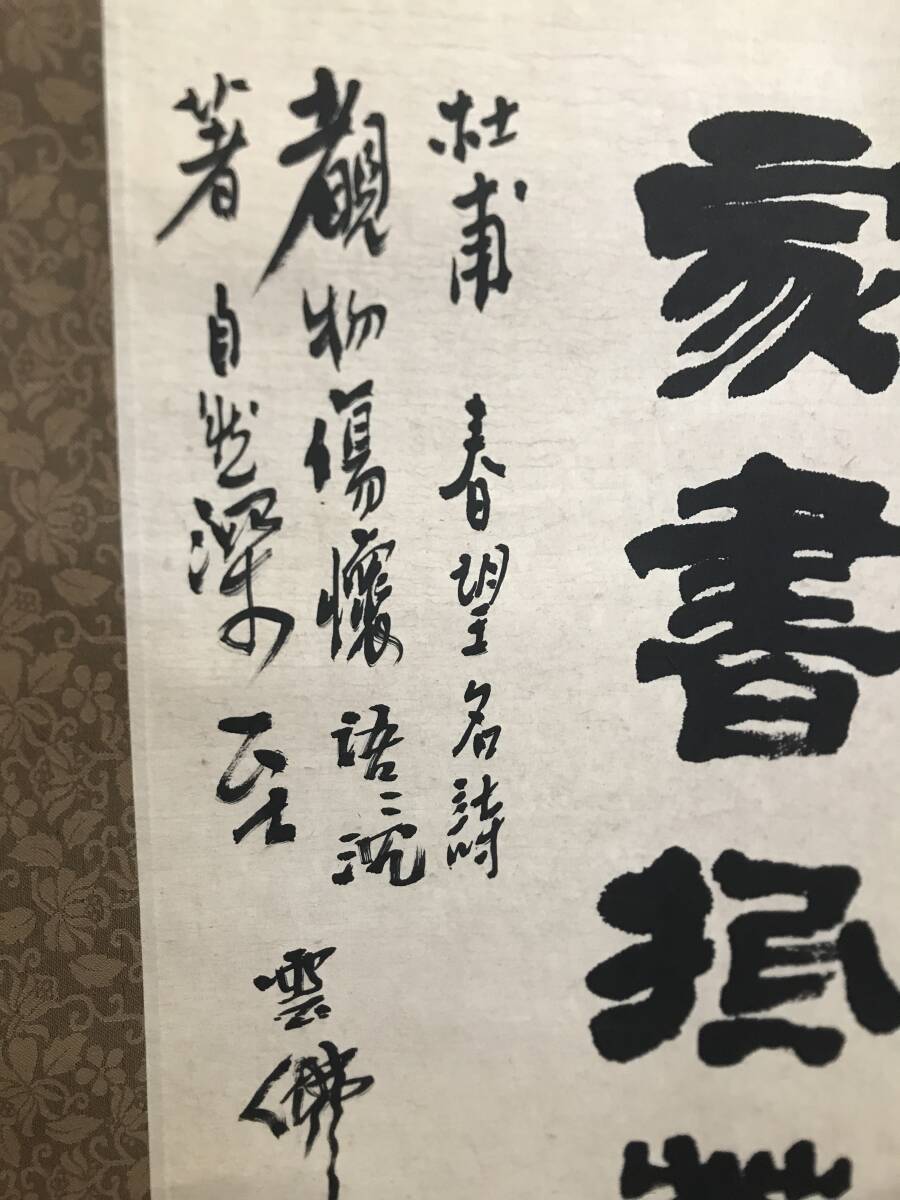 家書抵
杜甫 春望名詩
覩物傷懷語〻沉
著自然深
雲佛